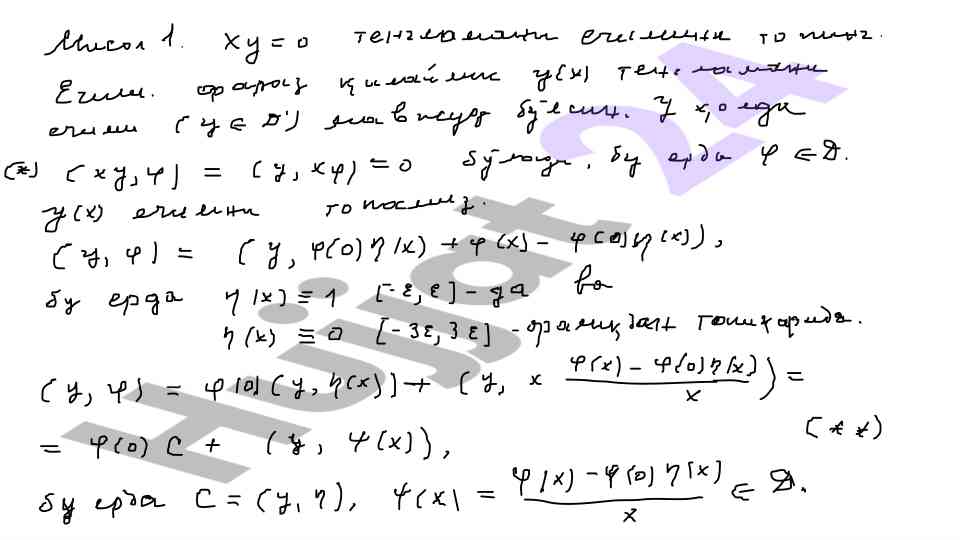 Мисол 1. xy = 0 тенгламани ечимини топинг.
Ечим. Фараз қилайлик y(x) тенгламани
ечими (y ∈ D') мавжуд бўлсин. У ҳолда
(*) (xy, φ) = (y, xφ) = 0 бўлади, бу ерда φ ∈ D.
y(x) ечимни топамиз.
(y, φ) = (y, φ(0)η(x) + φ(x) - φ(0)η(x)),
бу ерда η(x) ≡ 1 [-ε, ε] - да ва
η(x) ≡ 0 [-3ε, 3ε] - оралиқдан ташқарида.
(y, φ) = φ(0)(y, η(x)) + (y, x (φ(x) - φ(0)η(x))/x) =
= φ(0) C + (y, ψ(x)), (**)
бу ерда C = (y, η), ψ(x) = (φ(x) - φ(0)η(x))/x ∈ D.
Hujjat 24